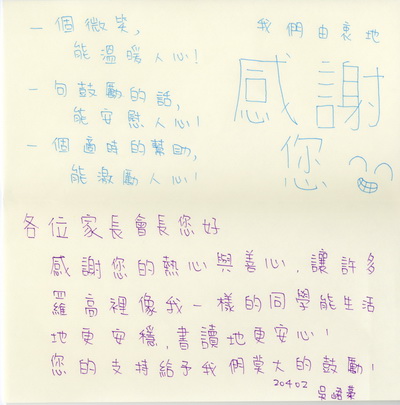 一個微笑，
能溫暖人心！
一句鼓勵的話，
能安慰人心！
一個適時的幫助，
能激勵人心！
我們由衷地
感謝
您
各位家長會長您好
感謝您的熱心與善心，讓許多
羅高裡像我一樣的同學能生活
地更安穩，書讀地更安心！
您的支持給予我們莫大的鼓勵！
20402
吳